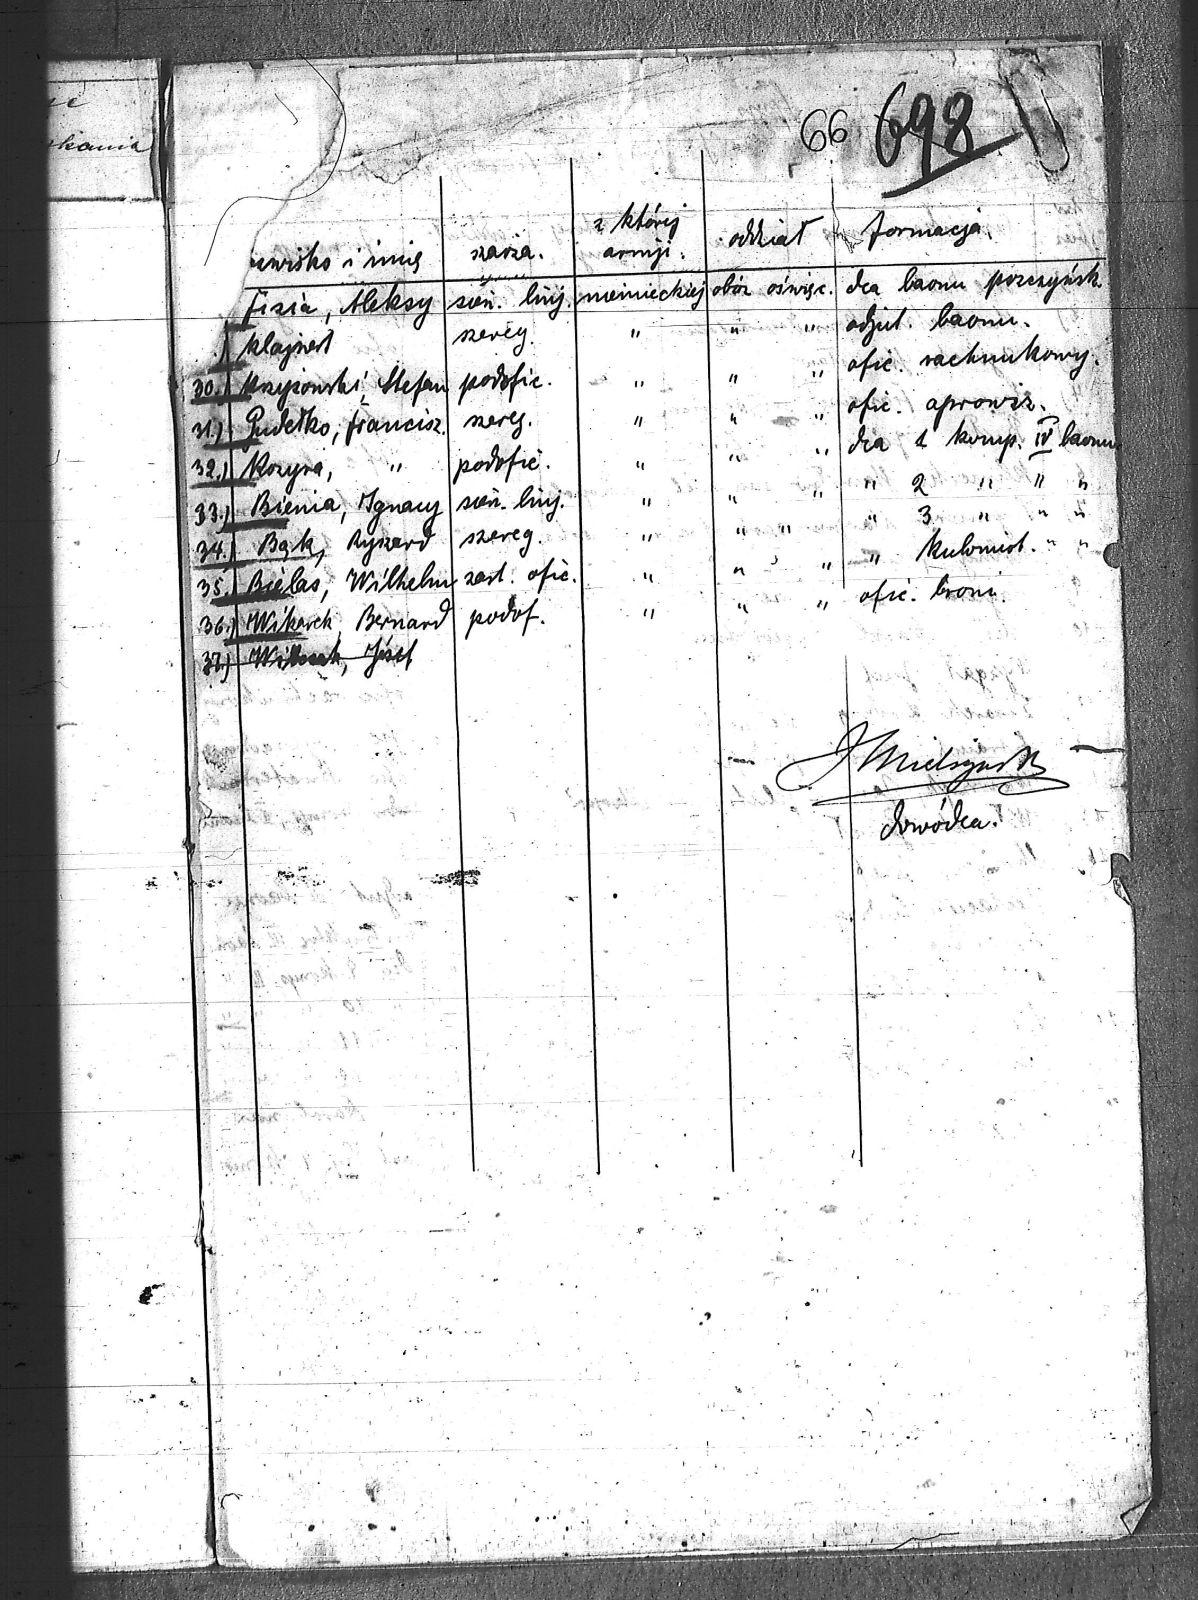 66 698
z której
szarża. armji. oddział formacja.
wisko i imię
Fizia, Aleksy sień. linj. niemieckiej obóz oświęc. dca baonu pszczyńsk.
) Klajnert szereg. " " " adjut. baonu.
30.) Krzyżowski, Stefan podofic. " " " ofic. rachunkowy.
31.) Pudełko, Francisz. szereg. " " " ofic. aprowiz.
32.) Kozyra, " podofic. " " " dca 1 komp. IV baonu.
33.) Bienia, Ignacy sień. linj. " " " " 2 " " "
34.) Bąk, Ryszard szereg. " " " " 3 " " "
35.) Bielas, Wilhelm zast. ofic. " " " " kulomiot. " "
36.) Wikarek, Bernard podof. " " " ofic. broni.
37.) Józef
dowódca.
skania